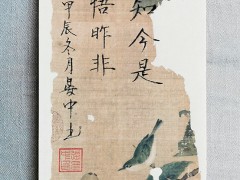 知今是
悟昨非
甲辰冬月晏中書